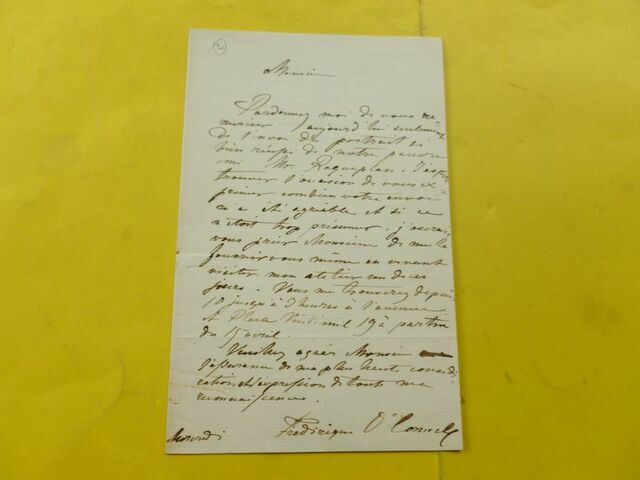 2
Monsieur
Pardonnez moi de vous re-
mercier aujourd'hui seulement
de l'envoi du portrait si
bien réussi de notre pauvre
ami Mr Roqueplan. J'espère
trouver l'occasion de vous ex-
primer combien votre envoi
m'a été agréable et si ce
n'était trop présumer, j'oserais
vous prier Monsieur de me la
fournir vous même en venant
visiter mon atelier un de ces
jours. Vous me trouverez depuis
10 jusqu'à 3 heures à l'avenue
Place Vintimil 19 à partir
du 15 avril.
Veuillez agréer Monsieur
l'assurance de ma plus haute considé
ration et l'expression de toute ma
reconnaissance
Mercredi Frédérique O'Connell